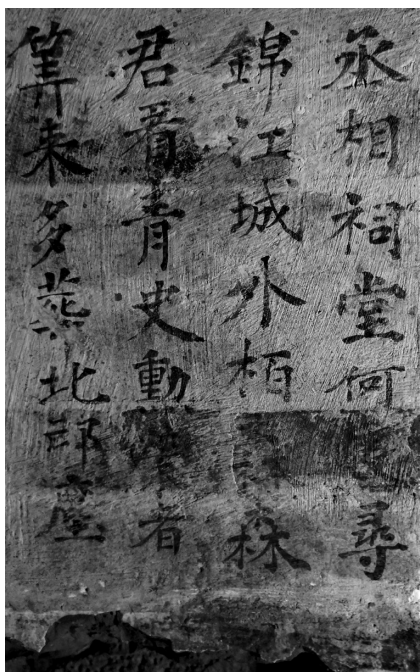 丞相祠堂何處尋
錦江城外柏森
君看青史動者
筭来多葬北邙塵